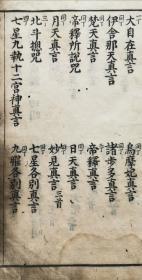 大自在真言
伊舍那天真言
梵天真言
帝釋所說咒
月天真言
北斗揔咒
七星九執十二宮神真言
烏摩妃真言
諸步多真言
帝釋真言
日天真言
妙見真言 三首
七星各別真言
九曜各別真言